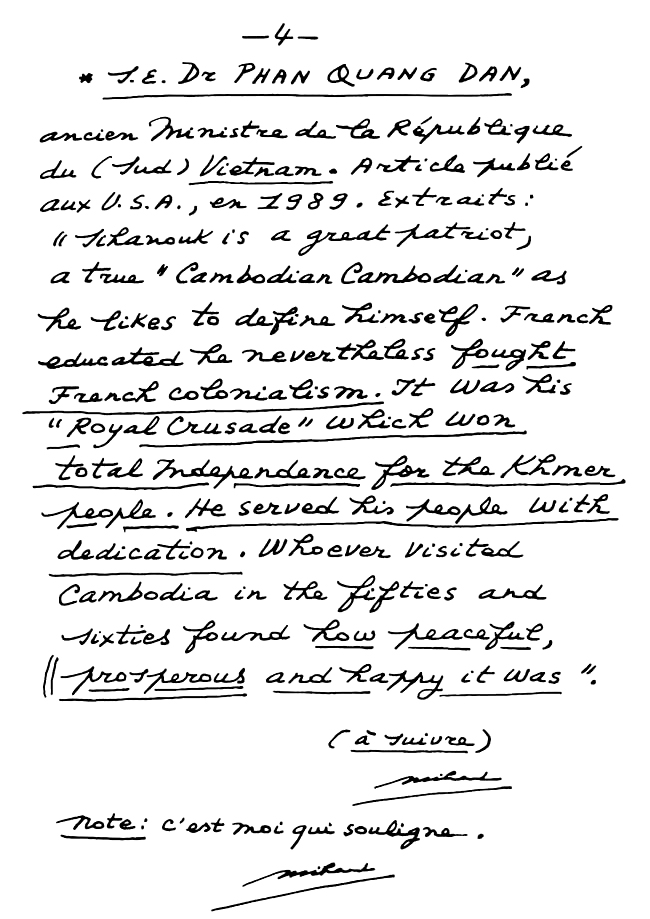 —4—
* S.E. Dr PHAN QUANG DAN,
ancien Ministre de la République
du (Sud) Vietnam. Article publié
aux U.S.A., en 1989. Extraits :
"Sihanouk is a great patriot,
a true "Cambodian Cambodian" as
he likes to define himself. French
educated he nevertheless fought
French colonialism. It was his
"Royal Crusade" which won
total Independence for the Khmer
people. He served his people with
dedication. Whoever visited
Cambodia in the fifties and
sixties found how peaceful,
prosperous and happy it was".
(à suivre)
Note : c'est moi qui souligne.